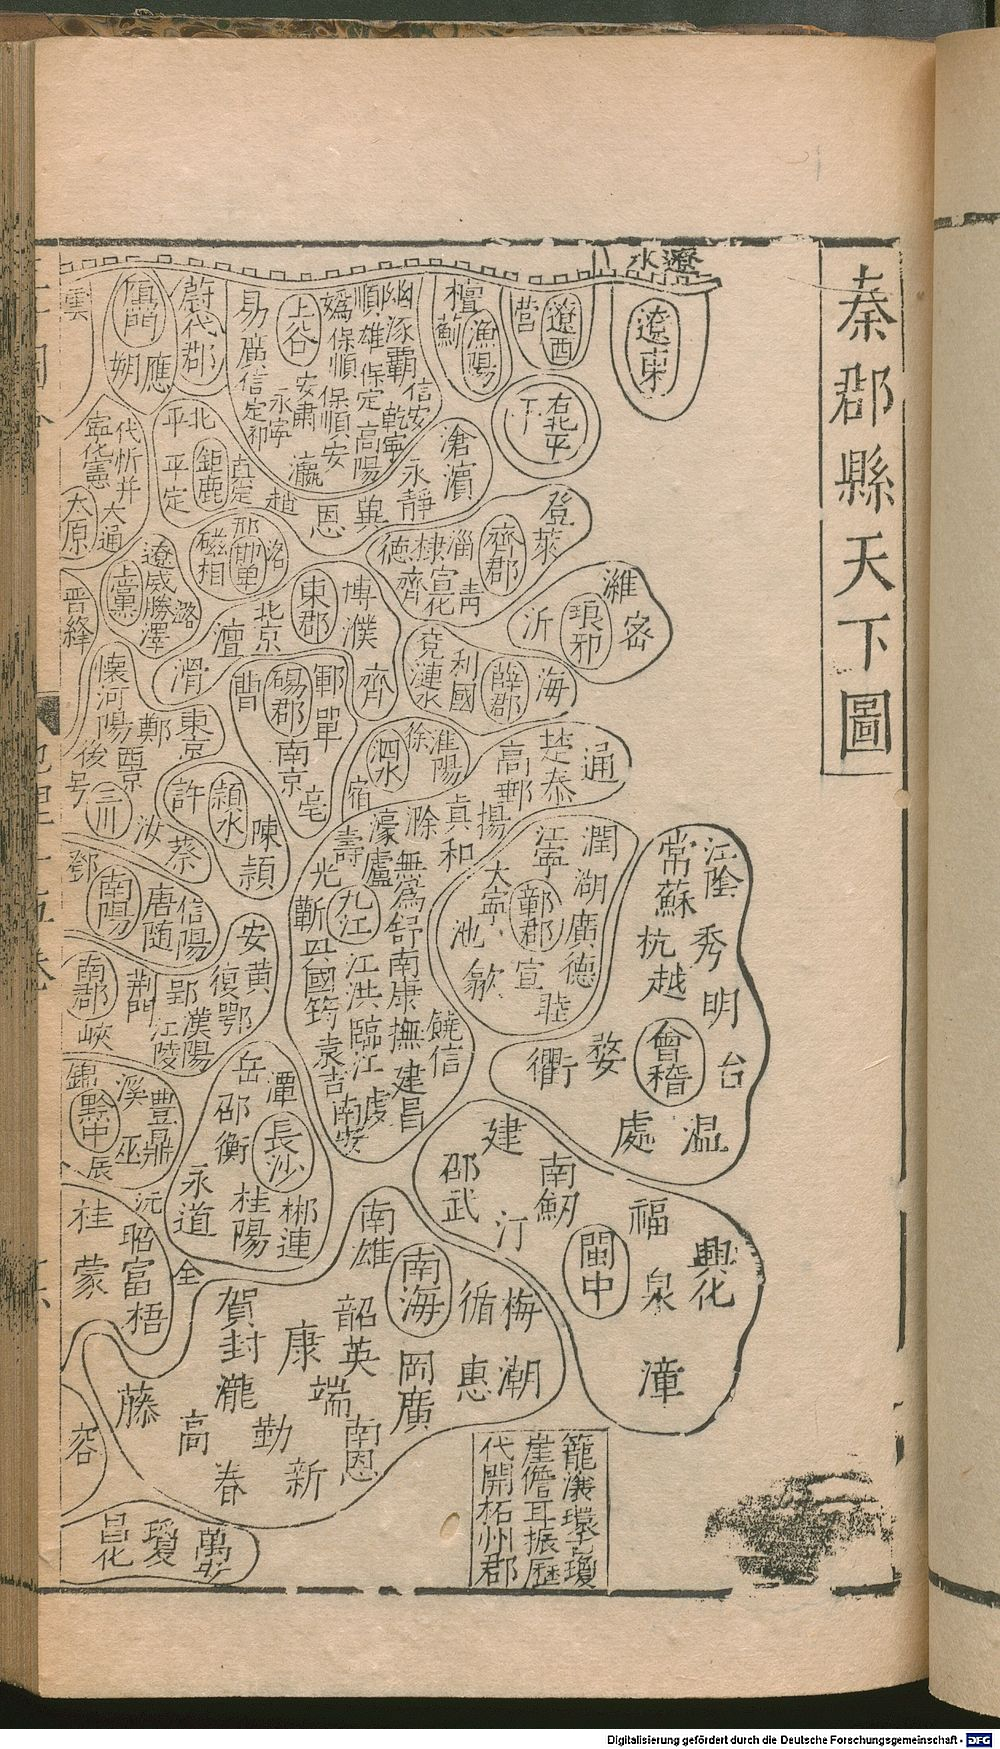 秦郡縣天下圖
遼水
遼東
遼西
營
右北平
檀
薊
漁陽
幽涿霸
信安
順雄保定
乾寧
高陽
永靜
媯保順
保順安
上谷
安肅
永寧
瀛
易廣信定祁
蔚
代郡
鴈門
應
朔
雲
代忻并
寧化憲
大通
太原
北平
平定
鉅鹿
真定
趙
恩
冀
滄濱
登萊
齊郡
淄青
棣
宣化
德
齊
濰密
琅邪
沂
海
薛郡
利國
兗
漣水
邢
洺
邯鄲
磁相
東郡
博濮
北京
澶
滑
齊
遼威勝澤
潞
上黨
晉絳
懷河陽
鄭
東京
西京
三川
汝
許
潁水
蔡
陳潁
曹
碭郡
鄆單
南京
亳
宿
泗水
徐
淮陽
楚泰
高郵
通
揚
真
和
滁
濠
壽
廬
光
無為
舒
九江
蘄
興國
筠
袁吉
江洪
臨江
虔
南安
南康
撫
建昌
饒信
潤
湖
廣德
江寧
太寧
鄣郡
池
宣
歙
睦
江陰
常蘇
杭越
秀
明
台
會稽
婺
衢
處
溫
鄧
南陽
唐隨
信陽
南郡
峽
荊門
郢
江陵
漢陽
安黃
復鄂
錦
黔中
辰
溪
巫
豐鼎
沅
岳
潭
邵衡
長沙
永道
桂陽
郴連
全
桂
蒙
昭富梧
建
邵武
南劒
汀
福
閩中
泉
興化
漳
南雄
南海
循
梅
惠
潮
韶英
康
端
岡
廣
南恩
賀封瀧
勤
新
高
春
藤
容
昌化
瓊
萬安
崖儋耳振歷
代開拓州郡
Digitalisierung gefördert durch die Deutsche Forschungsgemeinschaft - DFG